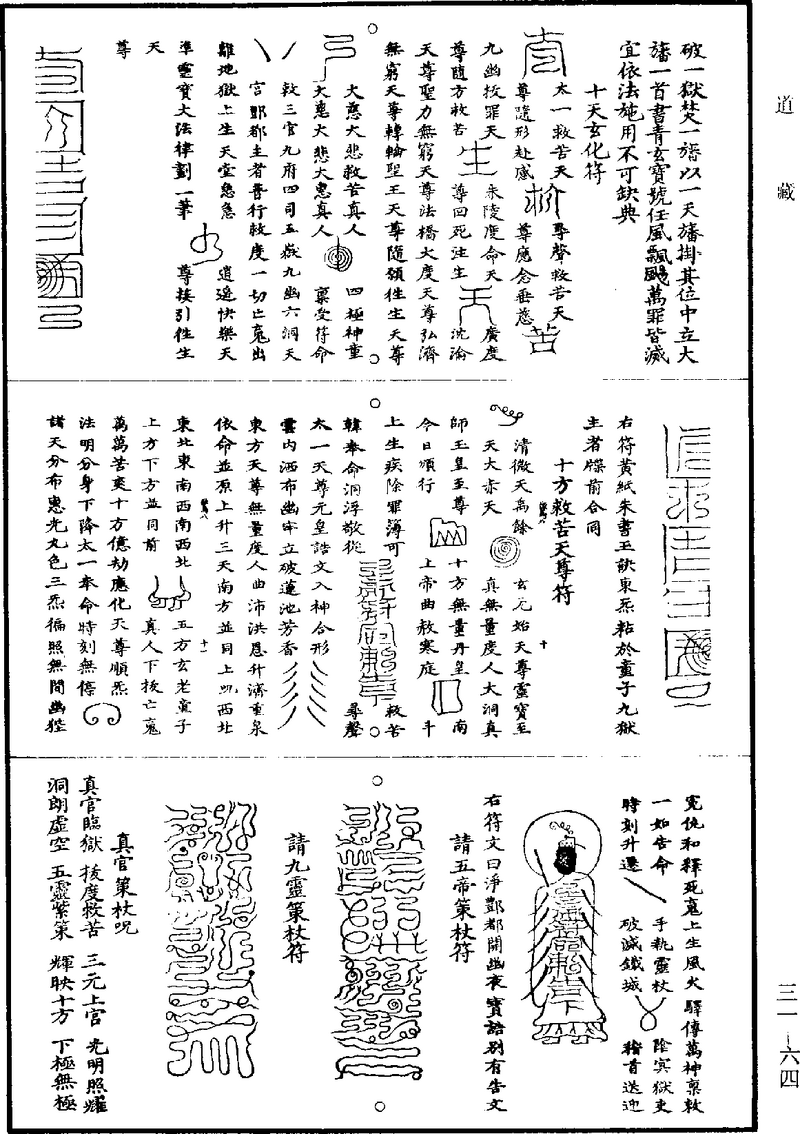 道藏
三一—六四
破一獄焚一旛以一天旛掛其位中立大
旛一首書青玄寶號任風飄颺萬罪皆滅
宜依法施用不可缺典
十天玄化符
太一救苦天
尊隨形赴感
尊聲救苦天
尊應念垂慈
九幽拔罪天
尊隨方救苦
朱陵度命天
尊回死注生
廣度
沈淪
天尊聖力無窮天尊法橋大度天尊弘濟
無窮天尊轉輪聖王天尊隨願往生天尊
大慈大悲救苦真人
大惠大悲大惠真人
四極神童
稟受符命
敕三官九府四司五嶽九幽六洞天
宮酆都主者普行赦度一切亡魂出
離地獄上生天堂急急
準靈寶大法律劃一筆
逍遥快樂天
尊接引往生
天
尊
右符黃紙朱書玉訣東炁粘於童子九獄
主者牒前合同
十方救苦天尊符
清微天禹餘
天大赤天
玄元始天尊靈寶至
真無量度人大洞真
師玉皇至尊
今日頒行
十方無量丹皇
上帝曲赦寒庭
南
斗
上生疾除罪簿可
韓奉命洞浮敬從
救苦
尋聲
太一天尊元皇誥文入神合形
雲內洒布幽牢立破蓮池芳香
東方天尊無量度人曲沛洪恩升濟重泉
依命並原上升三天南方並同上西北
東北東南西南西北
上方下方並同前
五方玄老童子
真人下拔亡魂
萬萬苦爽十方億劫應化天尊順炁
法明分身下降太一奉命時刻無停
諸天分布惠光九色三炁徧照無間幽狴
冤仇和釋死魂上生風火驛傳萬神稟敕
一如告命
時刻升遷
手執靈杖
破滅鐵城
陰冥獄吏
稽首送迎
右符文曰淨酆都開幽夜寶誥別有告文
請五帝策杖符
請九靈策杖符
真官策杖呪
真官臨獄 拔度救苦 三元上官 光明照耀
洞朗虛空 五靈紫策 輝映十方 下極無極